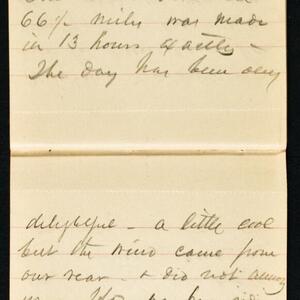 66½ miles was made
in 13 hours exactly -
The day has been very
delightful - a little cool
but the wind came from
our rear - & did not annoy
us.